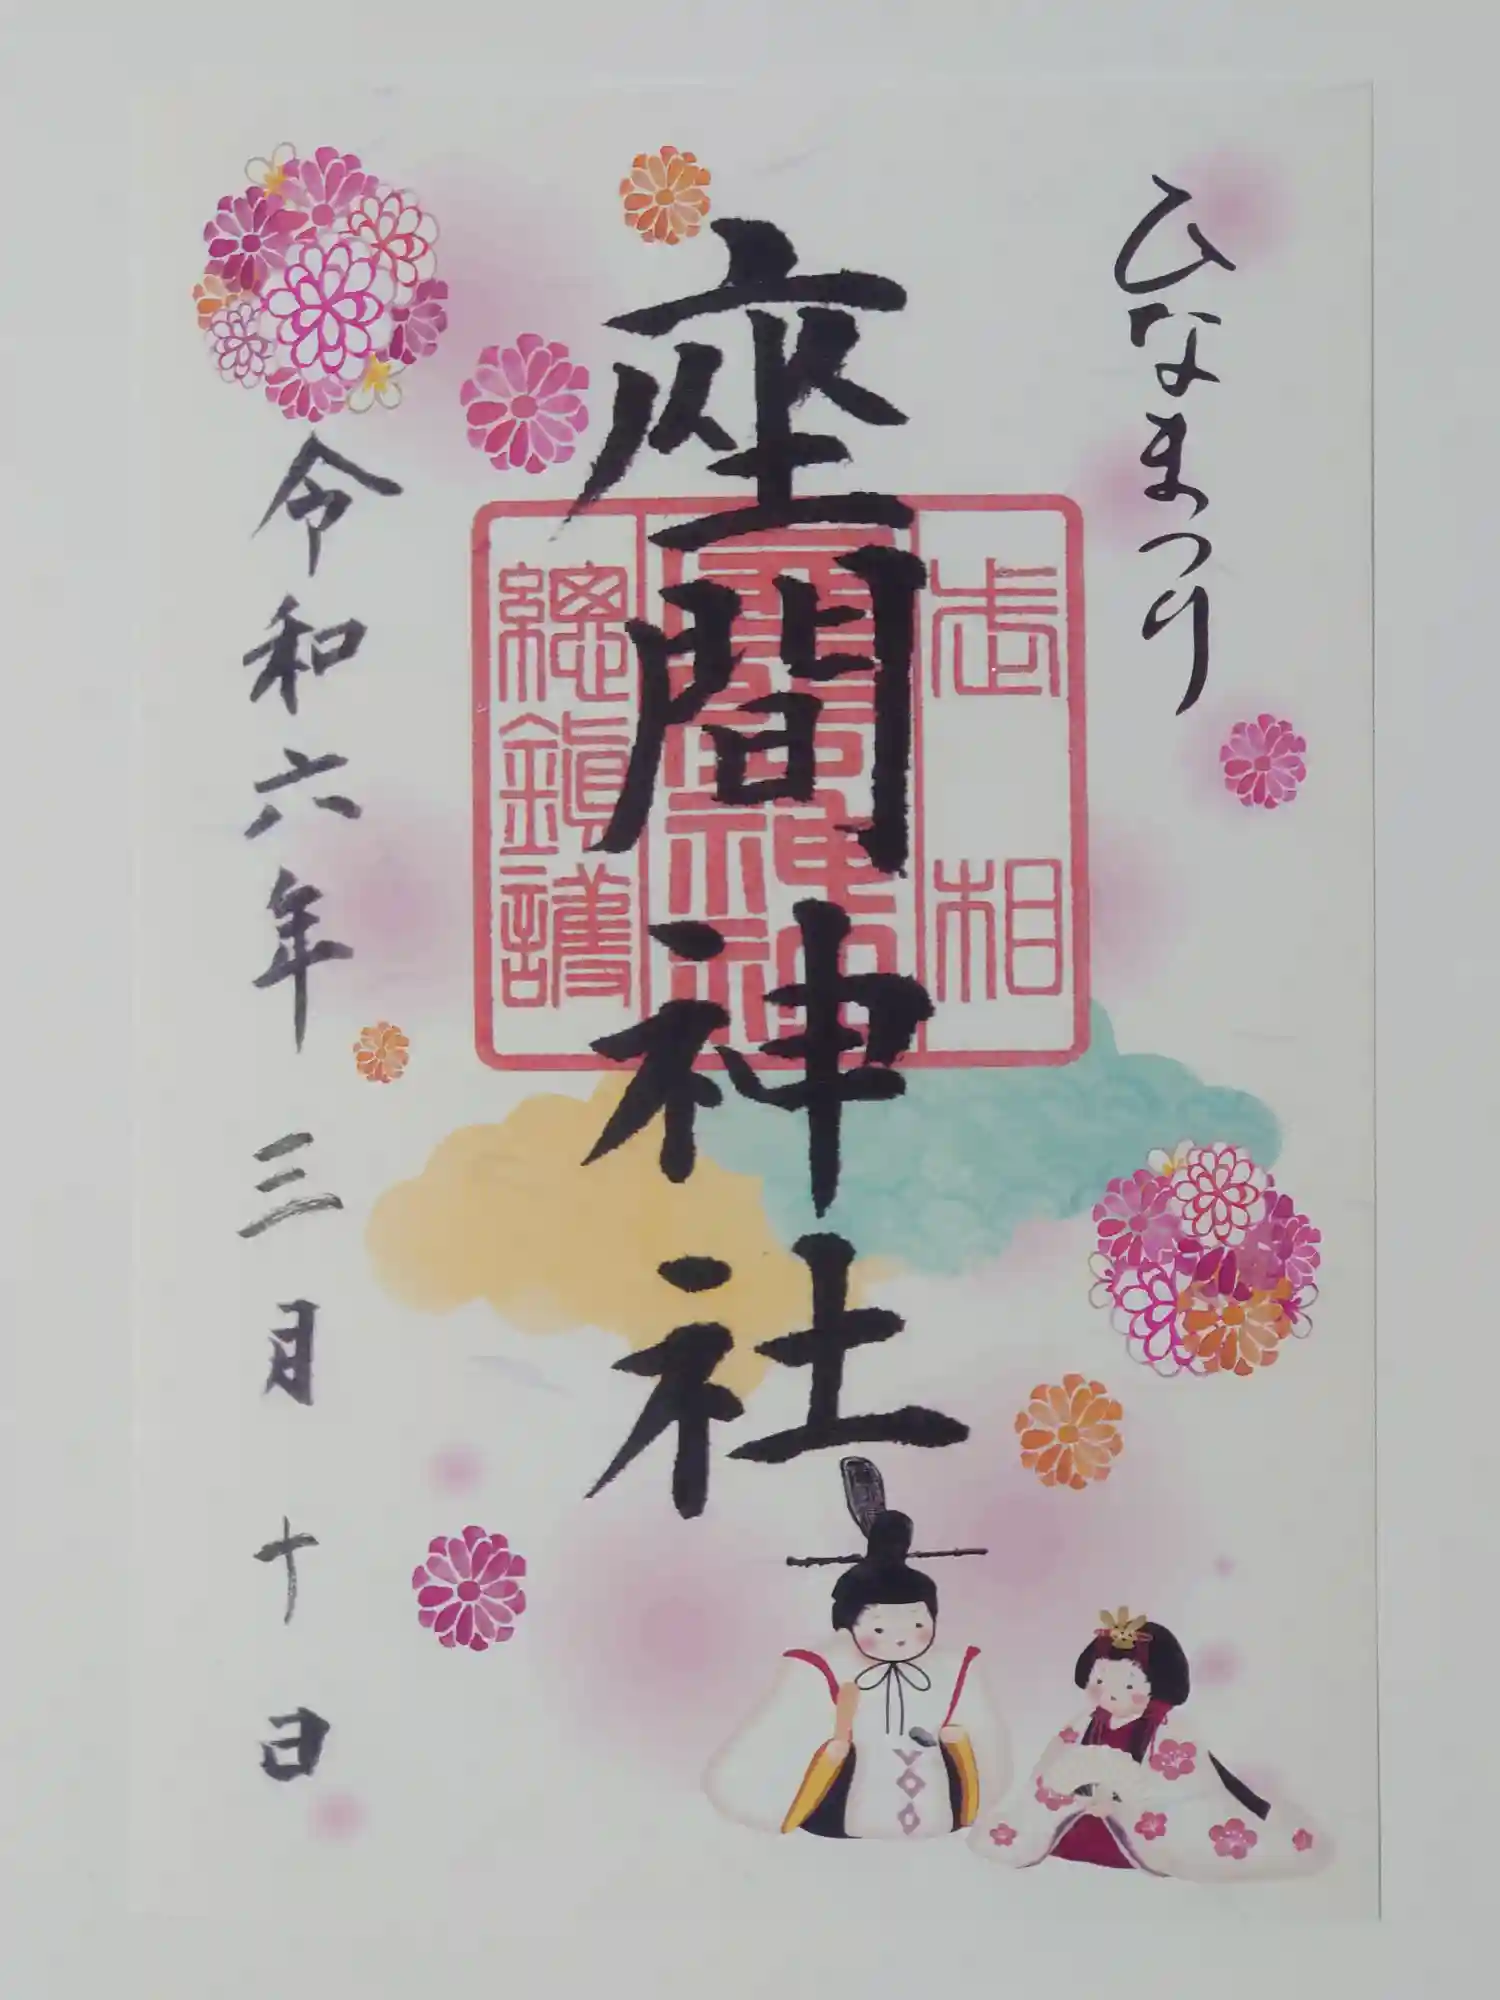 ひなまつり
座間神社
相
總鎮護
令和六年 三月 十日